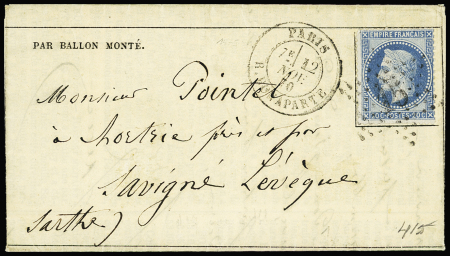 PAR BALLON MONTÉ.
PARIS
7E
12
NOV.
70
R. BONAPARTE
EMPIRE FRANÇAIS
20 C POSTES 20 C
Monsieur Pointel
à hortrie près et par
Savigné Lévèque
Sarthe)
415